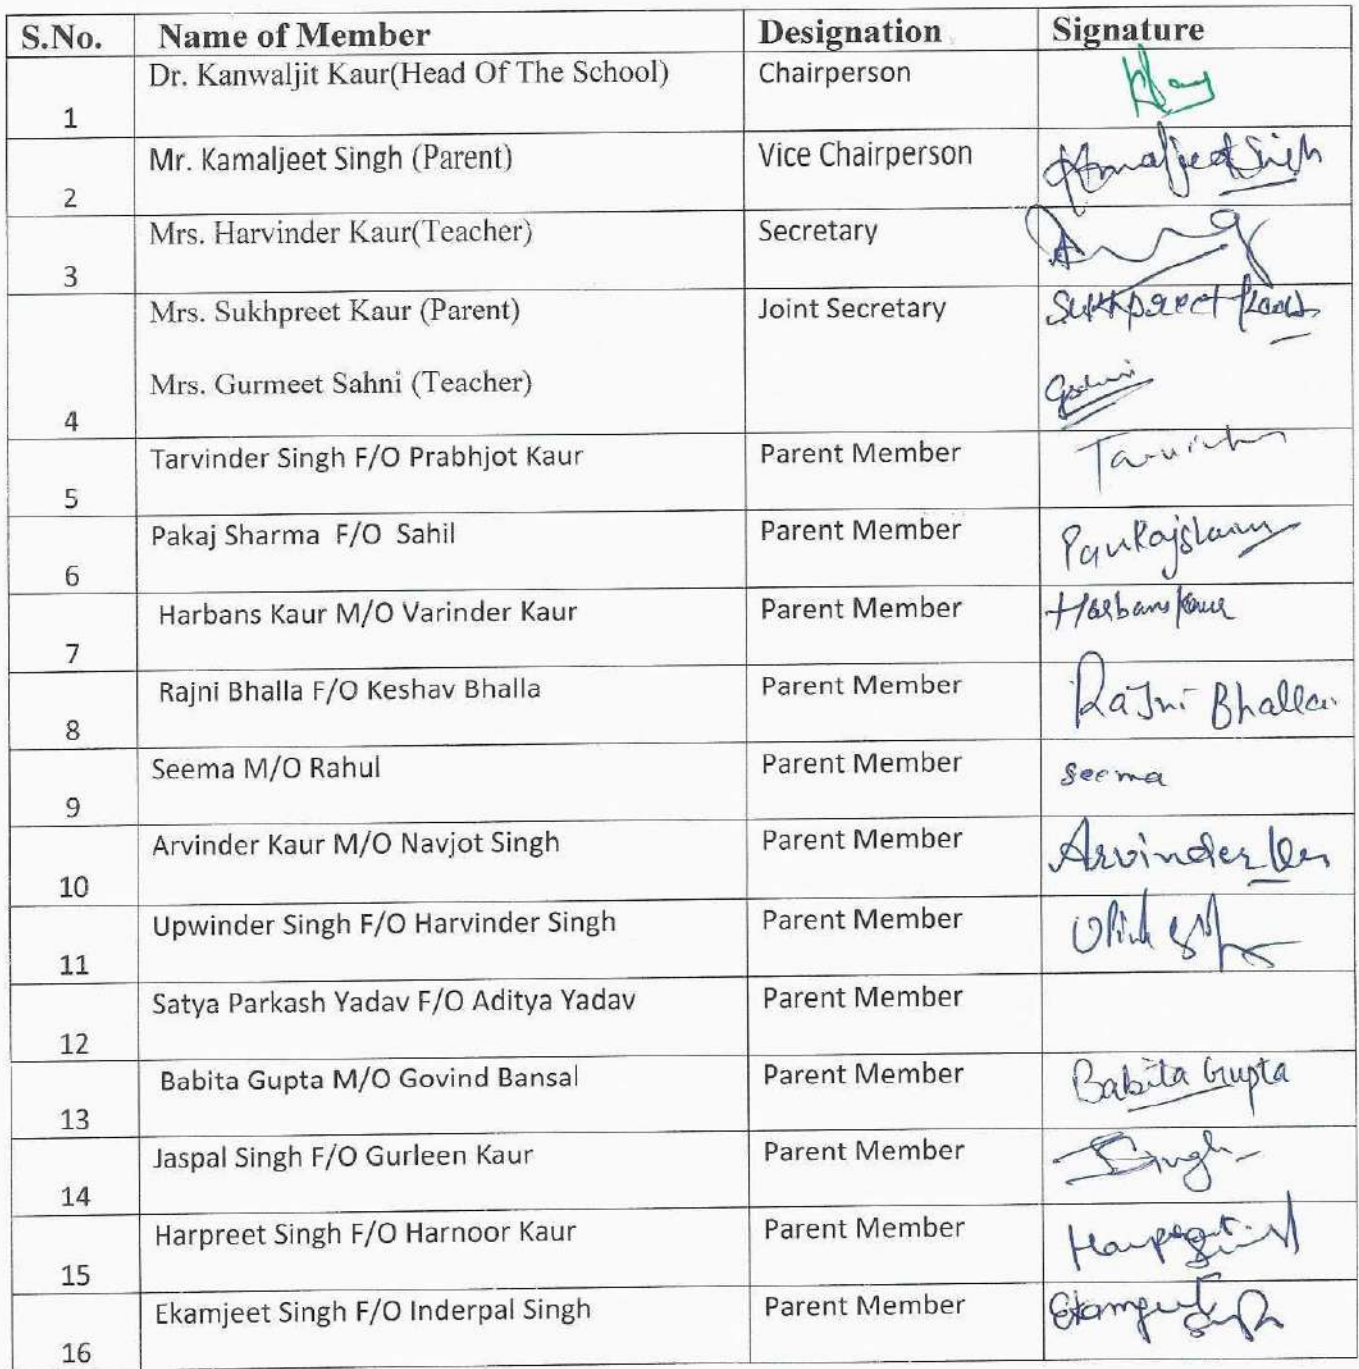 S.No. Name of Member Designation Signature
1 Dr. Kanwaljit Kaur(Head Of The School) Chairperson
2 Mr. Kamaljeet Singh (Parent) Vice Chairperson Kamaljeet Singh
3 Mrs. Harvinder Kaur(Teacher) Secretary
4 Mrs. Sukhpreet Kaur (Parent) Joint Secretary Sukhpreet Kaur
Mrs. Gurmeet Sahni (Teacher) GSahni
5 Tarvinder Singh F/O Prabhjot Kaur Parent Member Tarvinder
6 Pakaj Sharma F/O Sahil Parent Member Pankaj Sharma
7 Harbans Kaur M/O Varinder Kaur Parent Member Harbans Kaur
8 Rajni Bhalla F/O Keshav Bhalla Parent Member Rajni Bhalla
9 Seema M/O Rahul Parent Member Seema
10 Arvinder Kaur M/O Navjot Singh Parent Member Arvinder
11 Upwinder Singh F/O Harvinder Singh Parent Member
12 Satya Parkash Yadav F/O Aditya Yadav Parent Member
13 Babita Gupta M/O Govind Bansal Parent Member Babita Gupta
14 Jaspal Singh F/O Gurleen Kaur Parent Member Singh
15 Harpreet Singh F/O Harnoor Kaur Parent Member Harpreet Singh
16 Ekamjeet Singh F/O Inderpal Singh Parent Member Ekamjeet Singh